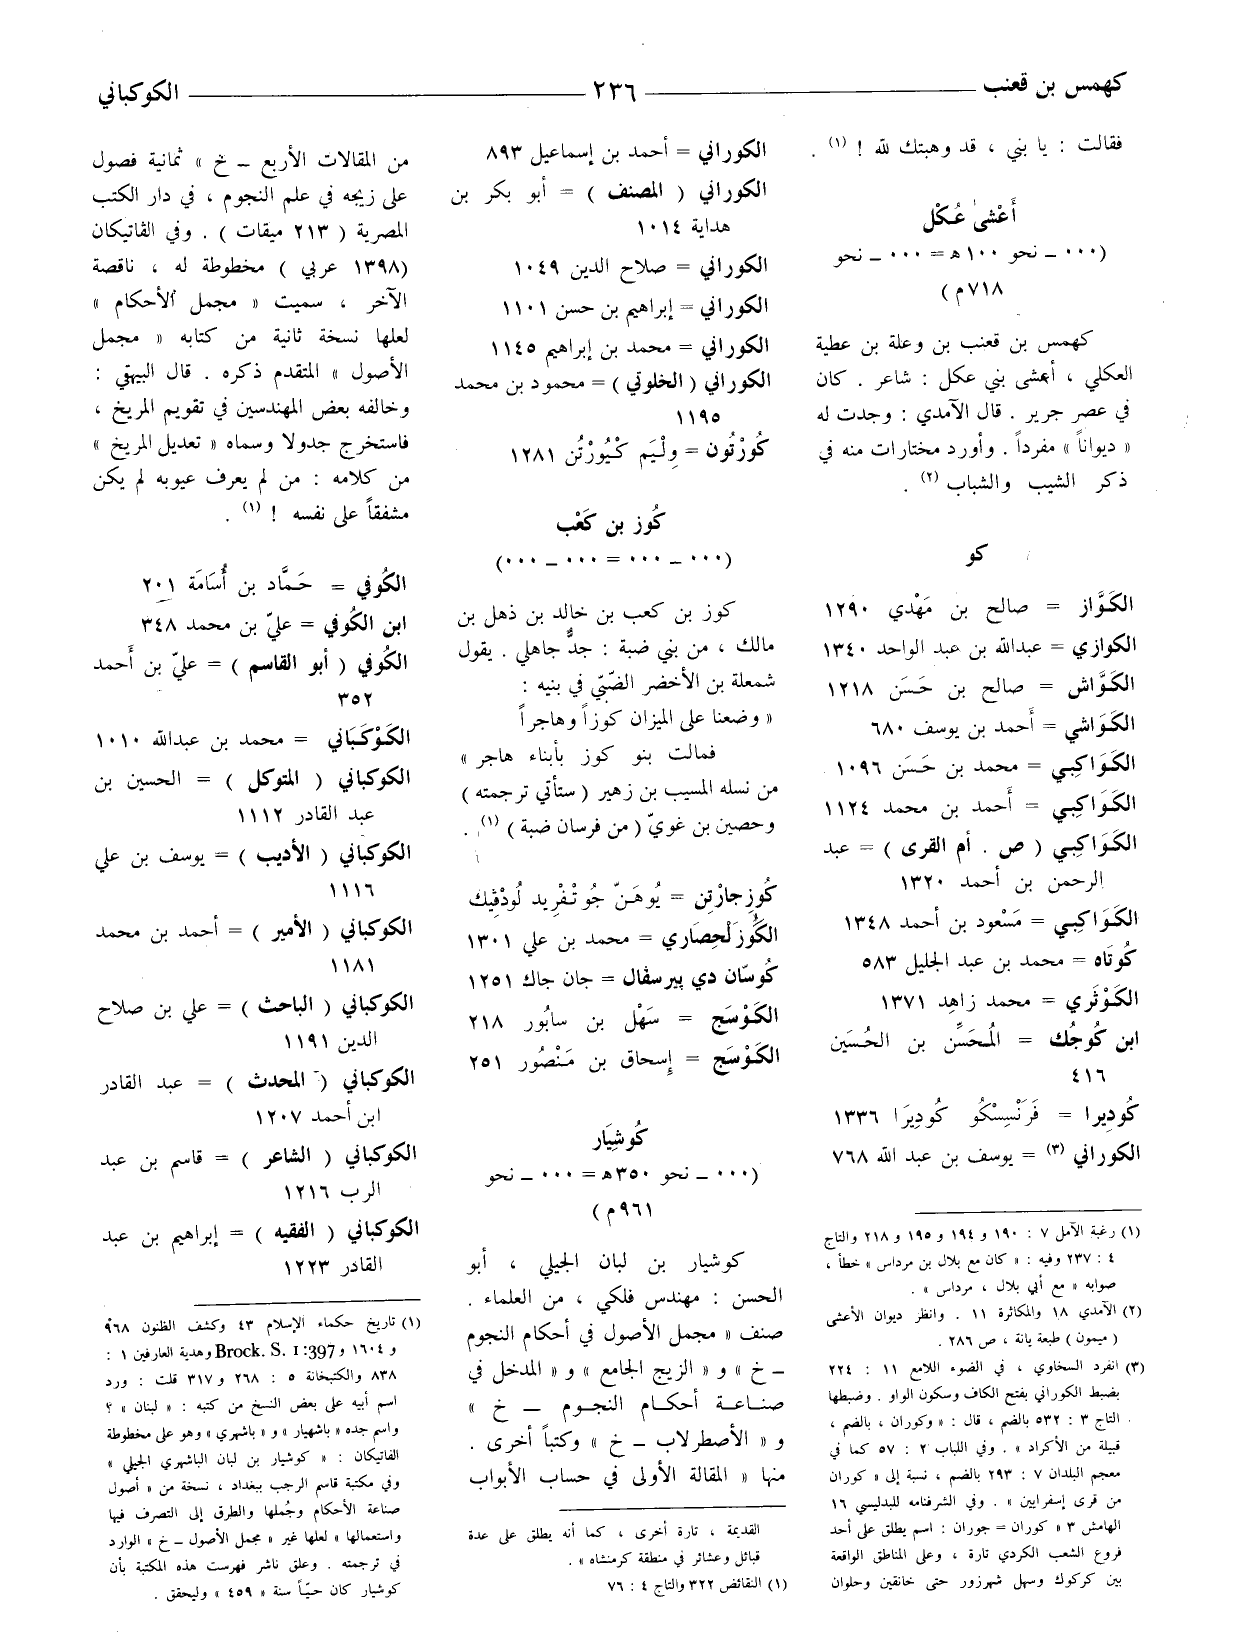 كهمس بن قعنب
٢٣٦
الكوكباني
فقالت : يا بني ، قد وهبتك لله ! (١) .
أَعْشىٰ عُكْل
(٠٠٠ ــ نحو ١٠٠ هـ = ٠٠٠ ــ نحو
٧١٨ م)
كهمس بن قعنب بن وعلة بن عطية
العكلي ، أعشى بني عكل : شاعر . كان
في عصر جرير . قال الآمدي : وجدت له
« ديواناً » مفرداً . وأورد مختارات منه في
ذكر الشيب والشباب (٢) .
كو
الكَوَّاز = صالح بن مَهْدي ١٢٩٠
الكوازي = عبدالله بن عبد الواحد ١٣٤٠
الكَوَّاش = صالح بن حَسَن ١٢١٨
الكَوَاشي = أَحمد بن يوسف ٦٨٠
الكَوَاكبِي = محمد بن حَسَن ١٠٩٦
الكَوَاكِبي = أَحمد بن محمد ١١٢٤
الكَوَاكِبي ( ص . أم القرى ) = عبد
الرحمن بن أحمد ١٣٢٠
الكَوَاكبِي = مَسْعود بن أحمد ١٣٤٨
كُوتَاه = محمد بن عبد الجليل ٥٨٣
الكَوْثَري = محمد زاهِد ١٣٧١
ابن كُوجُك = المُحَسِّن بن الحُسَين
٤١٦
كُودِيرا = فَرَنْسِسْكُو كُودِيرَا ١٣٣٦
الكوراني (٣) = يوسف بن عبد الله ٧٦٨
(١) رغبة الآمل ٧ : ١٩٠ و ١٩٤ و ١٩٥ و ٢١٨ والتاج
٤ : ٢٣٧ وفيه : « كان مع بلال بن مرداس » خطأ ،
صوابه « مع أبي بلال ، مرداس » .
(٢) الآمدي ١٨ والمكاثرة ١١ . وانظر ديوان الأعشى
( ميمون ) طبعة يانة ، ص ٢٨٦ .
(٣) انفرد السخاوي ، في الضوء اللامع ١١ : ٢٢٤
بضبط الكوراني بفتح الكاف وسكون الواو . وضبطها
التاج ٣ : ٥٣٢ بالضم ، قال : « وكوران ، بالضم ،
قبيلة من الأكراد » . وفي اللباب ٢ : ٥٧ كما في
معجم البلدان ٧ : ٢٩٣ بالضم ، نسبة إلى « كوران
من قرى إسفرايين » . وفي الشرفنامه للبدليسي ١٦
الهامش ٣ « كوران = جوران : اسم يطلق على أحد
فروع الشعب الكردي تارة ، وعلى المناطق الواقعة
بين كركوك وسهل شهرزور حتى خانقين وحلوان
الكوراني = أحمد بن إسماعيل ٨٩٣
الكوراني ( المصنف ) = أبو بكر بن
هداية ١٠١٤
الكوراني = صلاح الدين ١٠٤٩
الكوراني = إبراهيم بن حسن ١١٠١
الكوراني = محمد بن إبراهيم ١١٤٥
الكوراني ( الخلوتي ) = محمود بن محمد
١١٩٥
كُورْتُون = وِلْيَم كْيُورْتُن ١٢٨١
كُوز بن كَعْب
(٠٠٠ ــ ٠٠٠ = ٠٠٠ ــ ٠٠٠)
كوز بن كعب بن خالد بن ذهل بن
مالك ، من بني ضبة : جدٌّ جاهلي . يقول
شمعلة بن الأخضر الضّبّي في بنيه :
« وضعنا على الميزان كوزاً وهاجراً
فمالت بنو كوز بأبناء هاجر »
من نسله المسيب بن زهير ( ستأتي ترجمته )
وحصين بن غويّ ( من فرسان ضبة ) (١) .
كُوزِجارْتِن = يُوهَنّ جُوتْفْرِيد لُودْڤِيك
الكُوزَلْحِصَاري = محمد بن علي ١٣٠١
كُوسّان دي پيرسڤال = جان جاك ١٢٥١
الكَوْسَج = سَهْل بن سابُور ٢١٨
الكَوْسَج = إسحاق بن مَنْصُور ٢٥١
كُوشِيَار
(٠٠٠ ــ نحو ٣٥٠ هـ = ٠٠٠ ــ نحو
٩٦١ م)
كوشيار بن لبان الجيلي ، أبو
الحسن : مهندس فلكي ، من العلماء .
صنف « مجمل الأصول في أحكام النجوم
ــ خ » و « الزيج الجامع » و « المدخل في
صناعة أحكام النجوم ــ خ »
و « الأصطرلاب ــ خ » وكتباً أخرى .
منها « المقالة الأولى في حساب الأبواب
القديمة ، تارة أخرى ، كما أنه يطلق على عدة
قبائل وعشائر في منطقة كرمنشاه » .
(١) النقائض ٣٢٢ والتاج ٤ : ٧٦
من المقالات الأربع ــ خ » ثمانية فصول
على زيجه في علم النجوم ، في دار الكتب
المصرية ( ٢١٣ ميقات ) . وفي الڤاتيكان
(١٣٩٨ عربي ) مخطوطة له ، ناقصة
الآخر ، سميت « مجمل الأحكام »
لعلها نسخة ثانية من كتابه « مجمل
الأصول » المتقدم ذكره . قال البيهقي :
وخالفه بعض المهندسين في تقويم المريخ ،
فاستخرج جدولا وسماه « تعديل المريخ »
من كلامه : من لم يعرف عيوبه لم يكن
مشفقاً على نفسه ! (١) .
الكُوفي = حَمَّاد بن أُسَامَة ٢٠١
ابن الكُوفي = عليّ بن محمد ٣٤٨
الكُوفي ( أبو القاسم ) = عليّ بن أَحمد
٣٥٢
الكَوْكَبَاني = محمد بن عبدالله ١٠١٠
الكوكباني ( المتوكل ) = الحسين بن
عبد القادر ١١١٢
الكوكباني ( الأديب ) = يوسف بن علي
١١١٦
الكوكباني ( الأمير ) = أحمد بن محمد
١١٨١
الكوكباني ( الباحث ) = علي بن صلاح
الدين ١١٩١
الكوكباني ( المحدث ) = عبد القادر
ابن أحمد ١٢٠٧
الكوكباني ( الشاعر ) = قاسم بن عبد
الرب ١٢١٦
الكوكباني ( الفقيه ) = إبراهيم بن عبد
القادر ١٢٢٣
(١) تاريخ حكماء الإسلام ٤٣ وكشف الظنون ٩٦٨
و ١٦٠٤ و Brock. S. I :397 وهدية العارفين ١ :
٨٣٨ والكتبخانة ٥ : ٢٦٨ و ٣١٧ قلت : ورد
اسم أبيه على بعض النسخ من كتبه : « لبنان » ؟
واسم جده « باشهيار » و « باشهري » وهو على مخطوطة
الفاتيكان : « كوشيار بن لبان الباشهري الجيلي »
وفي مكتبة قاسم الرجب ببغداد ، نسخة من « أصول
صناعة الأحكام وجُملها والطرق إلى التصرف فيها
واستعمالها » لعلها غير « مجمل الأصول ــ خ » الوارد
في ترجمته . وعلق ناشر فهرست هذه المكتبة بأن
كوشيار كان حيّاً سنة « ٤٥٩ » وليحقق .